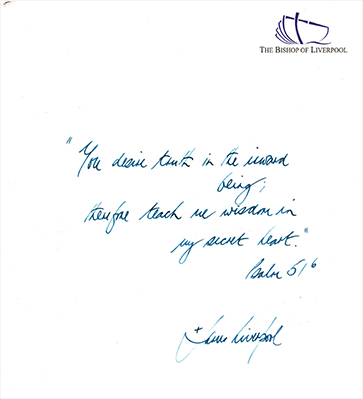 THE BISHOP OF LIVERPOOL
"You desire truth in the inward
being;
therefore teach me wisdom in
my secret heart."
Psalm 51 6
+James Liverpool